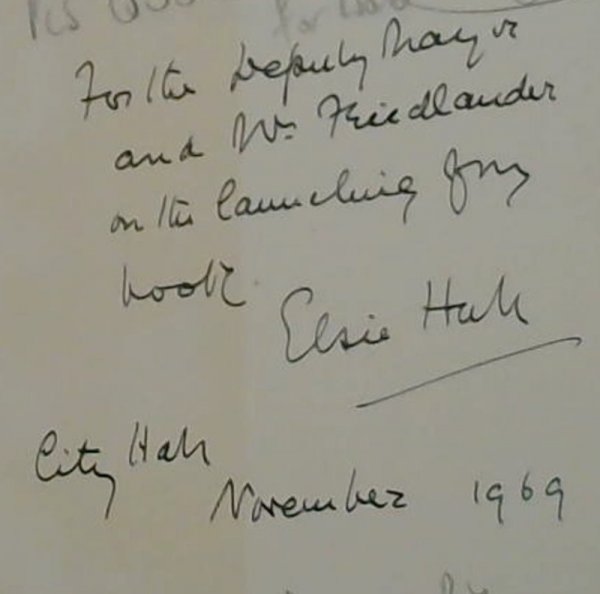 For the Deputy Mayor
and Mrs Friedlander
on the launching of my
book.
Elsie Hall
City Hall
November 1969